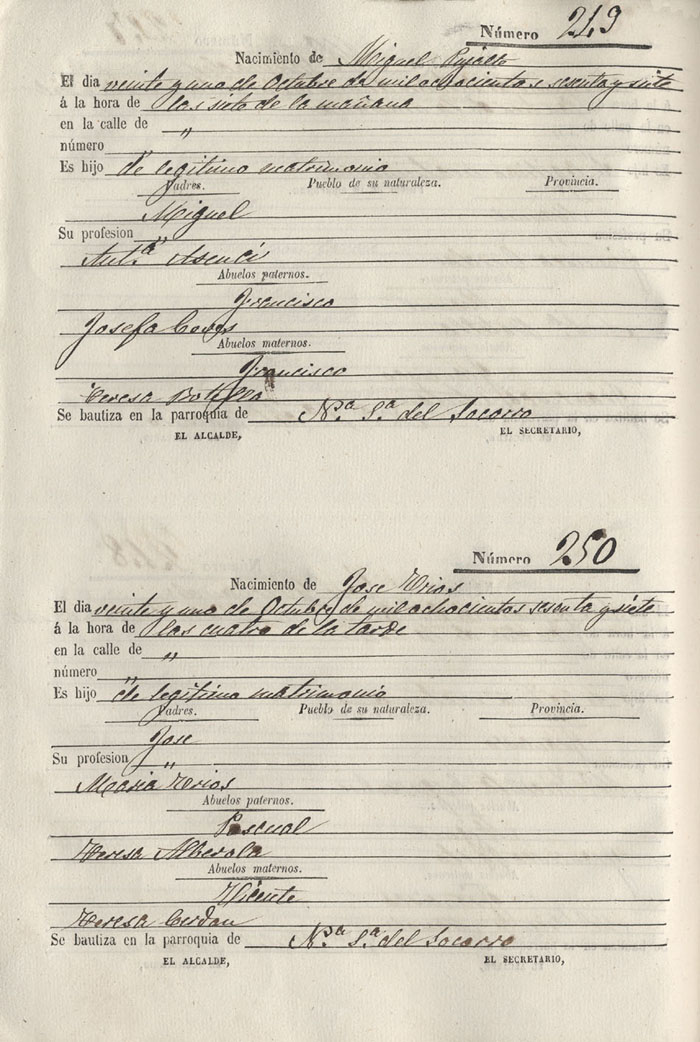 Número 249
Nacimiento de Miguel Pujalte
El dia veinte y uno de Octubre de mil ochocientos sesenta y siete
á la hora de las siete de la mañana
en la calle de "
número "
Es hijo de legitimo matrimonio
Padres. Pueblo de su naturaleza. Provincia.
Miguel
Su profesion "
Ant.ª Asencii
Abuelos paternos.
Francisco
Josefa Coves
Abuelos maternos.
Francisco
Teresa Botella
Se bautiza en la parroquia de N.ª S.ª del Socorro
EL ALCALDE, EL SECRETARIO,
Número 250
Nacimiento de Jose
El dia veinte y uno de Octubre de mil ochocientos sesenta y siete
á la hora de las cuatro de la tarde
en la calle de "
número "
Es hijo de legitimo matrimonio
Padres. Pueblo de su naturaleza. Provincia.
Jose
Su profesion "
Maria
Abuelos paternos.
Pascual
Teresa Alberola
Abuelos maternos.
Vicente
Teresa Cerdan
Se bautiza en la parroquia de N.ª S.ª del Socorro
EL ALCALDE, EL SECRETARIO,